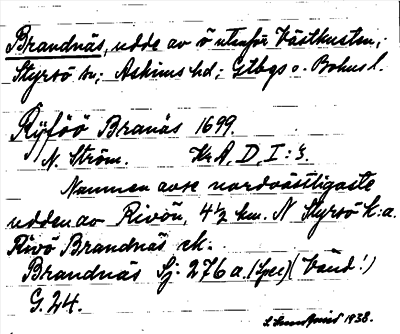 Brandnäs, udde av ö utanför Västkusten;
Styrsö sn; Askims hd; Gtbgs o. Bohusl.
Ryföö Branäs 1699.
N. Ström. KrA, D, I: 3.
Namnen avse nordvästligaste
udden av Rivön, 4½ km. N Styrsö k:a.
Rivö Brandnäs ek.
Brandnäs Sj. 276 a. (Spec) ( ! )
G. 24.
1938.